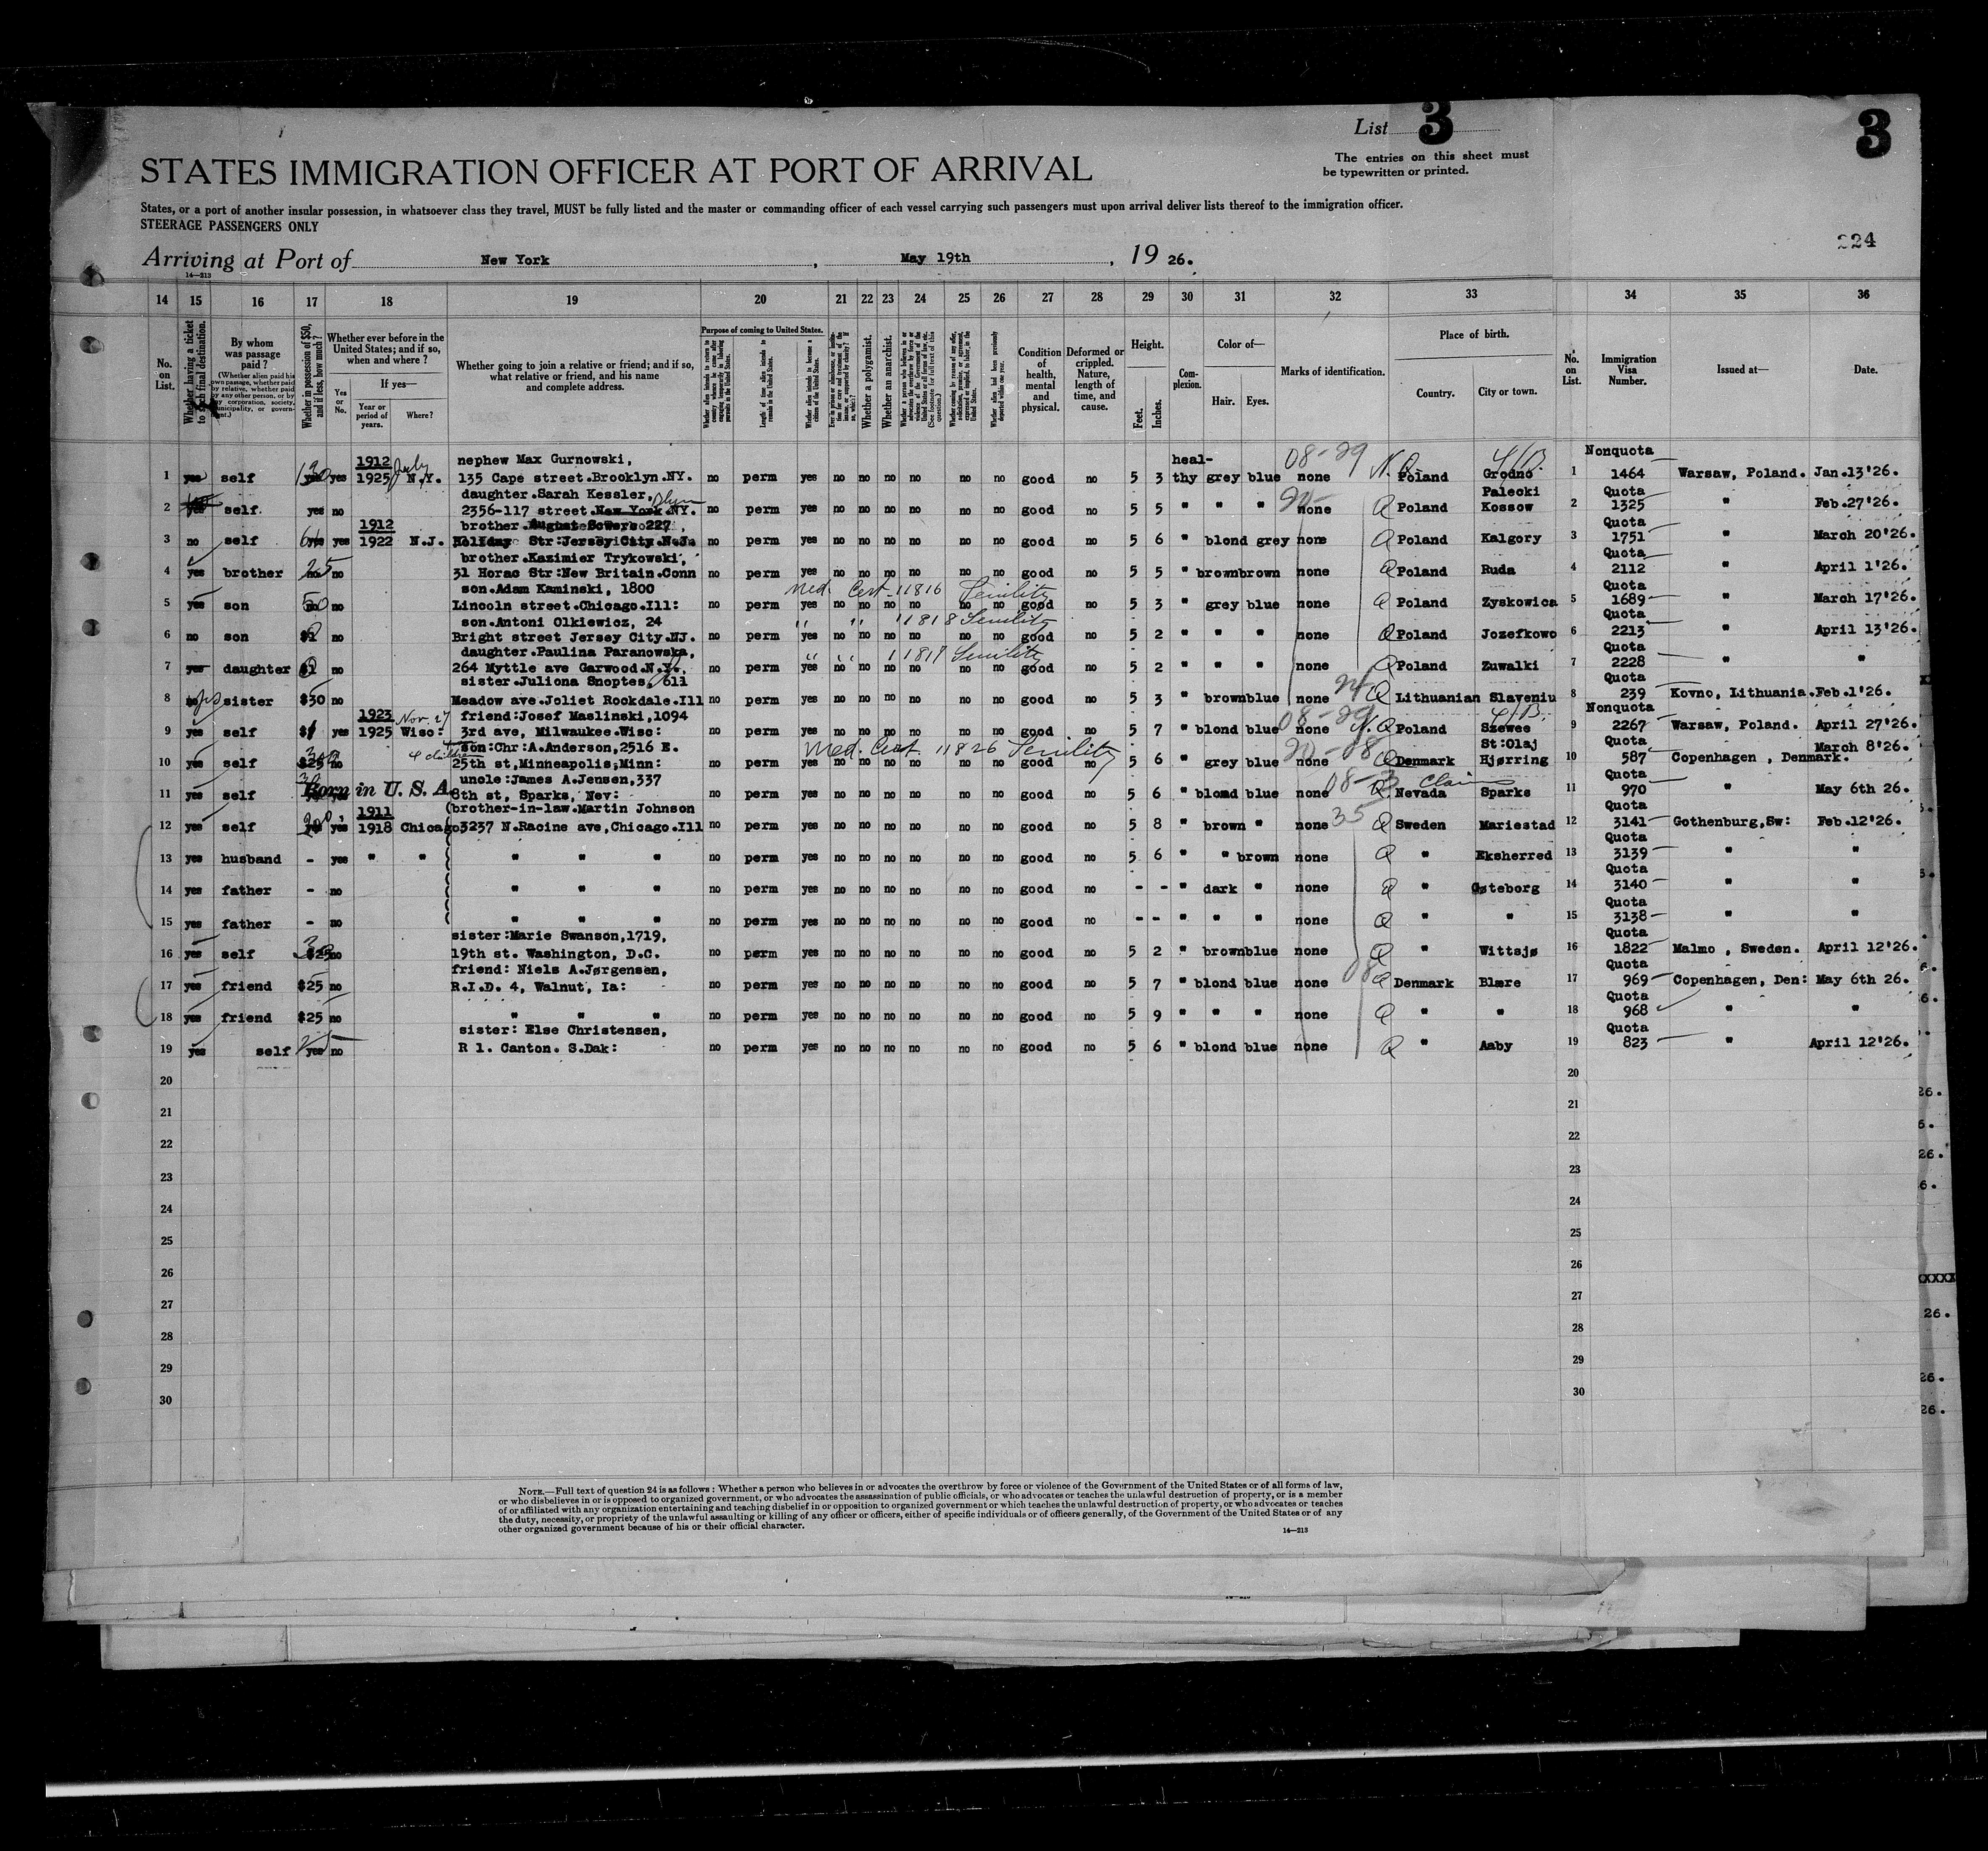 List 3
3
The entries on this sheet must
be typewritten or printed.
STATES IMMIGRATION OFFICER AT PORT OF ARRIVAL
States, or a port of another insular possession, in whatsoever class they travel, MUST be fully listed and the master or commanding officer of each vessel carrying such passengers must upon arrival deliver lists thereof to the immigration officer.
STEERAGE PASSENGERS ONLY
224
Arriving at Port of New York, May 19th, 1926.
14—213
14 15 16 17 18 19 20 21 22 23 24 25 26 27 28 29 30 31 32 33 34 35 36
No. on List.
Whether having a ticket to such final destination.
By whom was passage paid?
(Whether alien paid his own passage, whether paid by relative, whether paid by any other person, or by any corporation, society, municipality, or government.)
Whether in possession of $50, and if less, how much?
Whether ever before in the United States; and if so, when and where?
Yes or No.
If yes—
Year or period of years.
Where?
Whether going to join a relative or friend; and if so, what relative or friend, and his name and complete address.
Purpose of coming to United States.
Length of time alien intends to remain in the United States.
Whether alien intends to become a citizen of the United States.
Whether a polygamist.
Whether an anarchist.
Condition of health, mental and physical.
Deformed or crippled. Nature, length of time, and cause.
Height.
Feet.
Inches.
Complexion.
Color of—
Hair.
Eyes.
Marks of identification.
Place of birth.
Country.
City or town.
No. on List.
Immigration Visa Number.
Issued at—
Date.
1912 nephew Max Gurnowski, heal- 08-29 Nonquota
1 yes self 130 yes 1925 July N.Y. 135 Cape street.Brooklyn.NY. no perm yes no no no no no no good no 5 3 thy grey blue none N.Q. Poland Grodno 1 1464 Warsaw, Poland. Jan.13'26.
daughter.Sarah Kessler, Palecki Quota
2 yes self yes no 2356-117 street.New York.NY. no perm yes no no no no no no good no 5 5 " " " none Q Poland Kossow 2 1325 " Feb.27'26.
1912 brother. 227, Quota
3 no self yes yes 1922 N.J. Holiday Str:Jersey City.N.J. no perm yes no no no no no no good no 5 6 " blond grey none Q Poland Kalgory 3 1751 " March 20'26.
brother.Kazimier Trykowski, Quota
4 yes brother 25 no 31 Horac Str:New Britain.Conn no perm yes no no no no no no good no 5 5 " brown brown none Q Poland Ruda 4 2112 " April 1'26.
son.Adam Kaminski, 1800 Med. Cert. 11816 Senility Quota
5 yes son 50 no Lincoln street.Chicago.Ill: no perm yes no no no no no no good no 5 3 " grey blue none Q Poland Zyskowica 5 1689 " March 17'26.
son.Antoni Olkiewicz, 24 " " 11818 Senility Quota
6 no son $1 no Bright street Jersey City.NJ. no perm yes no no no no no no good no 5 2 " " " none Q Poland Jozefkowo 6 2213 " April 13'26.
daughter.Paulina Paranowska, " " 11817 Senility Quota
7 yes daughter $1 no 264 Myttle ave Garwood.N.Y. no perm yes no no no no no no good no 5 2 " " " none Q Poland Zuwalki 7 2228 " "
sister.Juliona Snoptes, 611 Quota
8 sister $30 no Meadow ave.Joliet Rockdale.Ill no perm yes no no no no no no good no 5 3 " brown blue none Q Lithuanian Slaveniu 8 239 Kovno, Lithuania. Feb.1'26.
1923 Nov. 27 friend:Josef Maslinski,1094 08-29 Nonquota
9 yes self $1 yes 1925 Wisc: 3rd ave, Milwaukee.Wisc: no perm yes no no no no no no good no 5 7 " blond blue none N.Q Poland Szewee 9 2267 Warsaw, Poland. April 27'26.
son:Chr:A.Anderson,2516 E. Med. Cert. 11826 Senility 20-08 St:Olaj Quota March 8'26.
10 yes self $25 no 25th st,Minneapolis;Minn: no perm yes no no no no no no good no 5 6 " grey blue none Q Denmark Hjørring 10 587 Copenhagen , Denmark.
uncle:James A.Jensen,337 Claim Quota
11 yes self Born in U. S. A. 8th st, Sparks, Nev: no perm yes no no no no no no good no 5 6 " blond blue none Q Nevada Sparks 11 970 " May 6th 26.
1911 (brother-in-law.Martin Johnson 35 Quota
12 yes self yes yes 1918 Chicago 3237 N.Racine ave,Chicago.Ill no perm yes no no no no no no good no 5 8 " brown " none Q Sweden Mariestad 12 3141 Gothenburg,Sw: Feb.12'26.
Quota
13 yes husband - yes " " " " " no perm yes no no no no no no good no 5 6 " " brown none Q " Eksherred 13 3139 " "
Quota
14 yes father - no " " " no perm yes no no no no no no good no - - " dark " none Q " Gøteborg 14 3140 " "
Quota
15 yes father - no " " " no perm yes no no no no no no good no - - " " " none Q " " 15 3138 " "
sister:Marie Swanson,1719, Quota
16 yes self $25 no 19th st. Washington, D.C. no perm yes no no no no no no good no 5 2 " brown blue none Q " Wittsjø 16 1822 Malmo , Sweden. April 12'26.
friend: Niels A.Jørgensen, 08 Quota
17 yes friend $25 no R.I.D. 4, Walnut, Ia: no perm yes no no no no no no good no 5 7 " blond blue none Q Denmark Blære 17 969 Copenhagen, Den: May 6th 26.
Quota
18 yes friend $25 no " " " no perm yes no no no no no no good no 5 9 " " " none Q " " 18 968 " "
sister: Else Christensen, Quota
19 yes self yes no R 1. Canton. S.Dak: no perm yes no no no no no no good no 5 6 " blond blue none Q " Aaby 19 823 " April 12'26.
20 20
21 21
22 22
23 23
24 24
25 25
26 26
27 27
28 28
29 29
30 30
NOTE.—Full text of question 24 is as follows: Whether a person who believes in or advocates the overthrow by force or violence of the Government of the United States or of all forms of law,
or who disbelieves in or is opposed to organized government, or who advocates the assassination of public officials, or who advocates or teaches the unlawful destruction of property, or is a member
of or affiliated with any organization entertaining and teaching disbelief in or opposition to organized government or which teaches the unlawful destruction of property, or who advocates or teaches
the duty, necessity, or propriety of the unlawful assaulting or killing of any officer or officers, either of specific individuals or of officers generally, of the Government of the United States or of any
other organized government because of his or their official character.
14—213